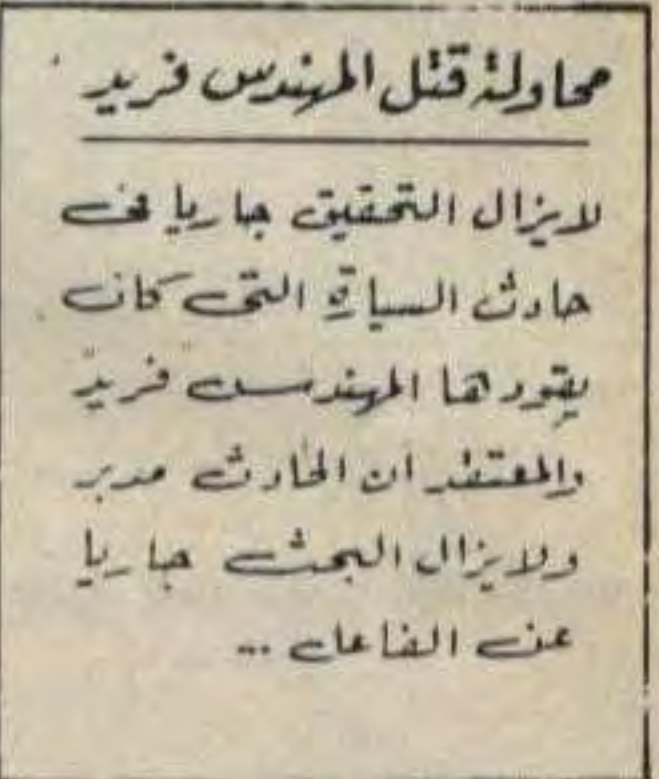 محاولة قتل المهندس فريد
لايزال التحقيق جاريا في
حادث السيارة التي كان
يقودها المهندس "فريد"
والمعتقد أن الحادث مدبر
ولايزال البحث جاريا
عن الفاعل ...